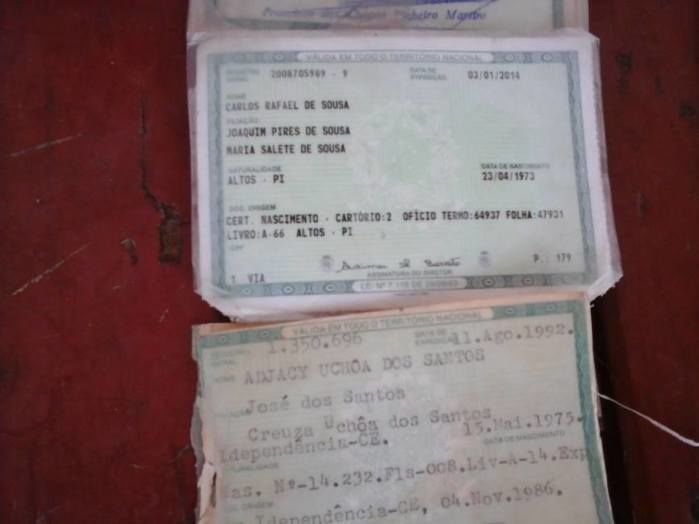 Pinheiro Martins
VÁLIDA EM TODO O TERRITÓRIO NACIONAL
REGISTRO GERAL 2008705989 - 9 DATA DE EXPEDIÇÃO 03/01/2014
NOME
CARLOS RAFAEL DE SOUSA
FILIAÇÃO
JOAQUIM PIRES DE SOUSA
MARIA SALETE DE SOUSA
NATURALIDADE DATA DE NASCIMENTO
ALTOS - PI 23/04/1973
DOC ORIGEM
CERT. NASCIMENTO - CARTÓRIO:2 OFÍCIO TERMO:64937 FOLHA:47931
LIVRO:A-66 ALTOS - PI
CPF
1 VIA P. 179
ASSINATURA DO DIRETOR
VÁLIDA EM TODO O TERRITÓRIO NACIONAL
REGISTRO GERAL 1.350.696 DATA DE EXPEDIÇÃO 11.Ago.1992.
NOME ADJACY UCHÔA DOS SANTOS
José dos Santos
Creuza Uchôa dos Santos
Idependência-CE. 15.Mai.1975.
NATURALIDADE DATA DE NASCIMENTO
as. Nº-14.232.Fls-008.Liv-A-14.Exp
ORIGEM Idependência-CE, 04.Nov.1986.